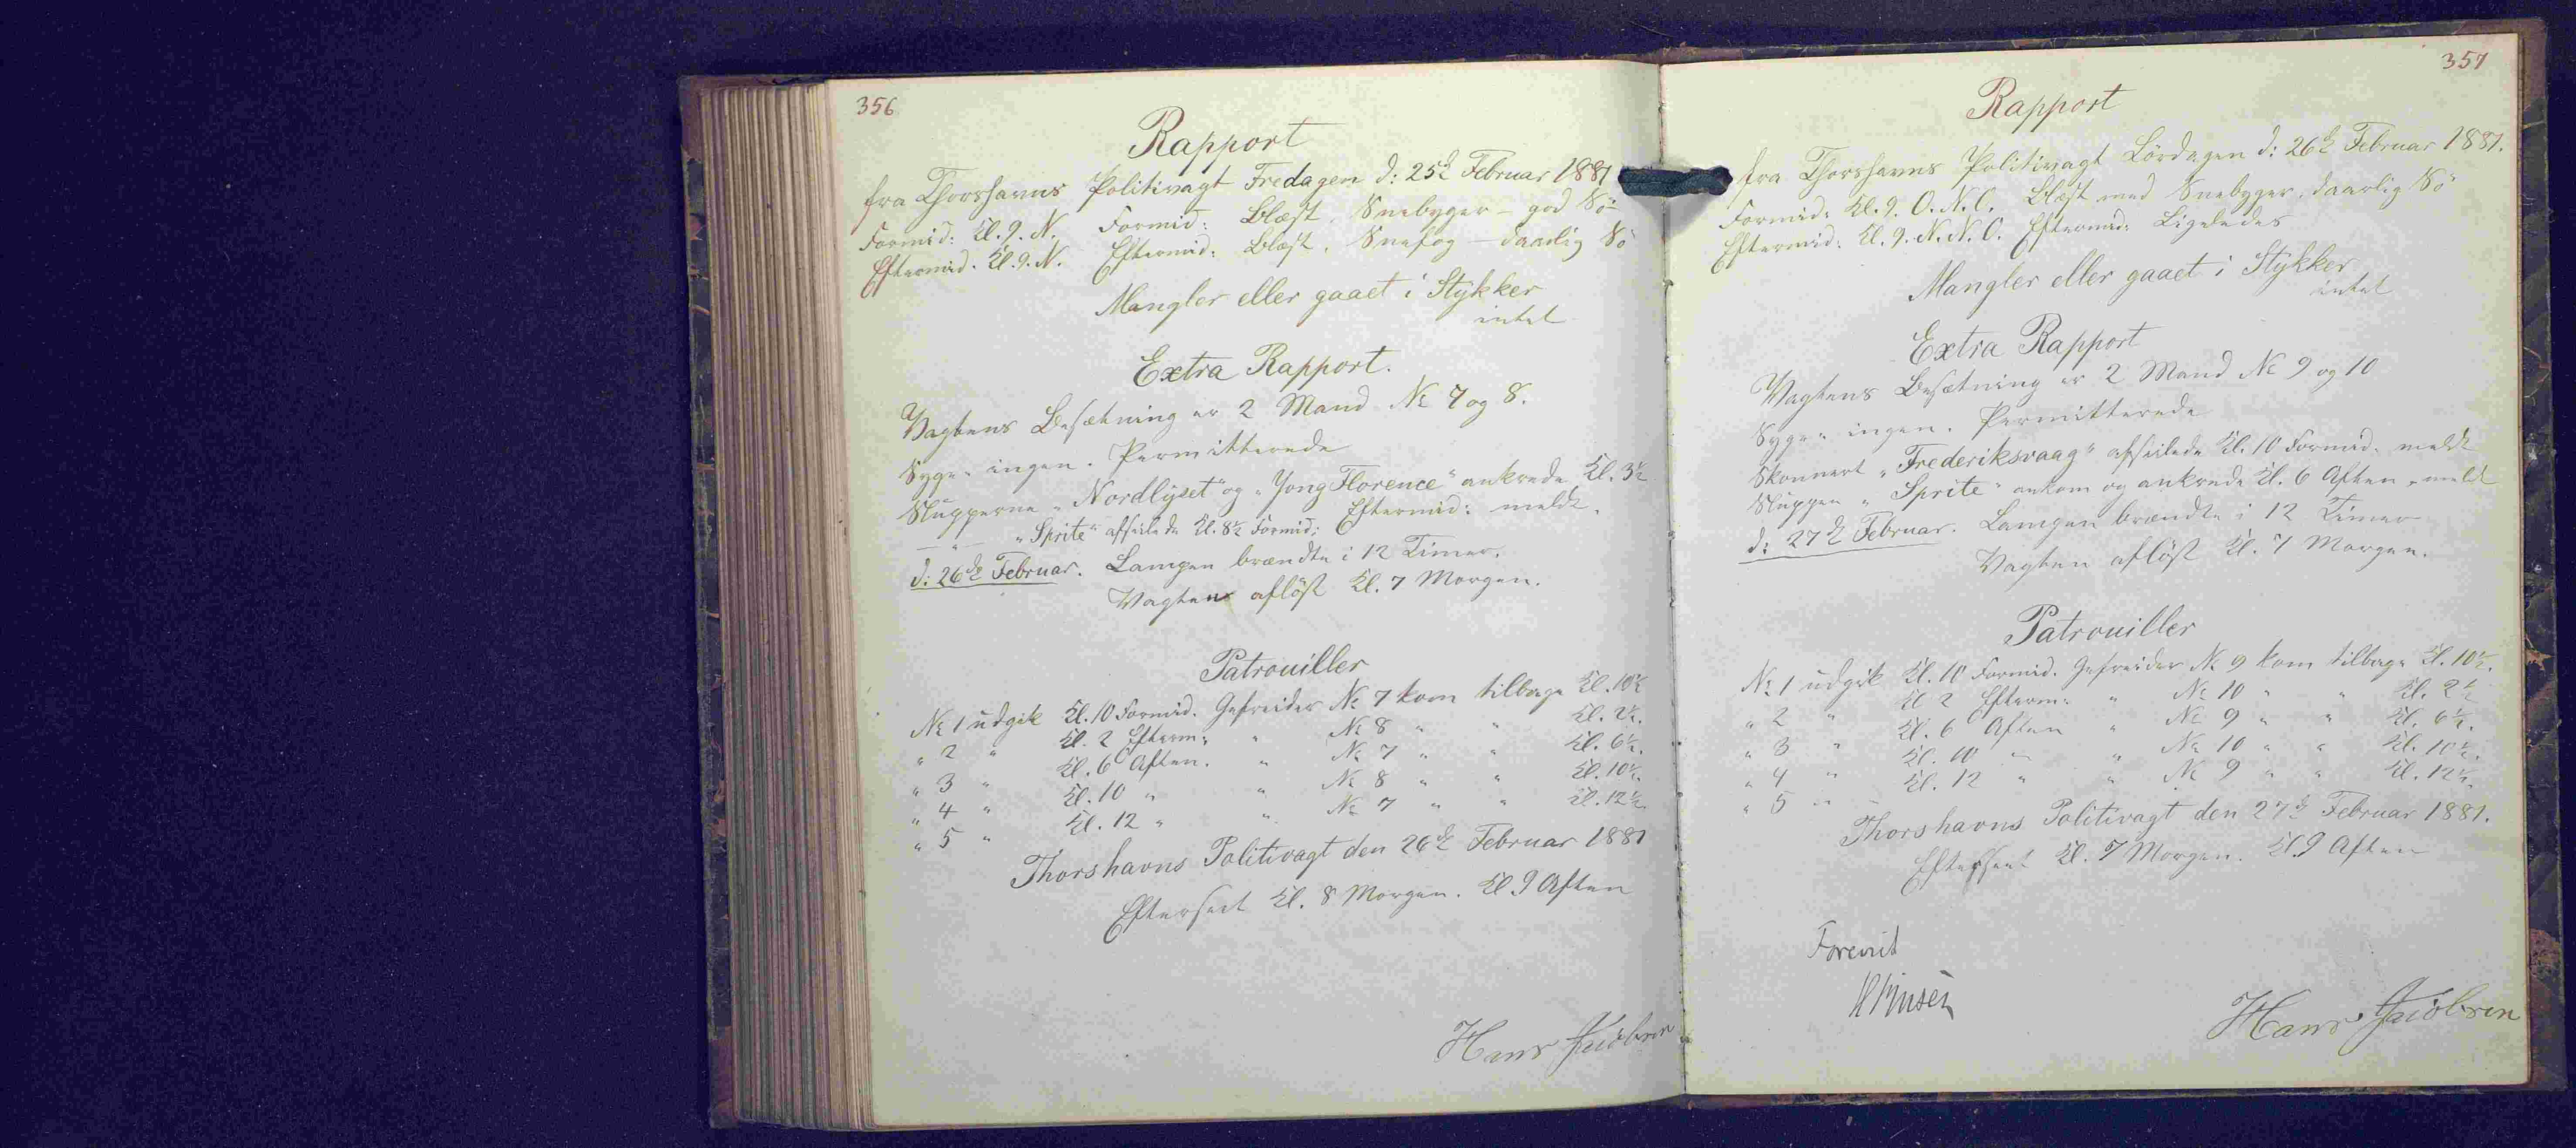 356
Rapport
fra Thorshavns Politivagt Fredagen d: 25de Februar 1881
Formid: Kl. 9. N. Formid: Blæst, Snebyger - god Sö
Eftermid. Kl. 9. N. Eftermid: Blæst, Snefog - daarlig Sö
Mangler eller gaaet i Stykker
intet
Extra Rapport.
Vagtens Besætning er 2 Mand No 7 og 8.
Syge " ingen. Permitterede
Slupperne "Nordlyset" og "Yong Florence" ankrede Kl. 3½
Eftermid: meldt.
— " — "Sprite" afseilede Kl. 8½ Formid:
d: 26de Februar. Lampen brændte i 12 Timer.
Vagten aflöst Kl. 7 Morgen.
Patrouiller
No 1 udgik Kl. 10 Formid. Gefreider No 7 kom tilbage Kl. 10½
" 2 " Kl. 2 Efterm: " No 8 " " Kl. 2½.
" 3 " Kl. 6 Aften. " No 7 " " Kl. 6½.
" 4 " Kl. 10 " " No 8 " " Kl. 10½.
" 5 " Kl. 12 " " No 7 " " Kl. 12½.
Thorshavns Politivagt den 26de Februar 1881
Efterseet Kl. 8 Morgen. Kl 9 Aften
Hans
357
Rapport
fra Thorshavns Politivagt Lördagen d: 26de Februar 1881.
Formid: Kl. 9. O. N. O. Blæst med Snebyger, daarlig Sö
Eftermid: Kl. 9. N. N. O. Eftermid: Ligeledes
Mangler eller gaaet i Stykker
intet
Extra Rapport
Vagtens Besætning er 2 Mand No 9 og 10
Syge " ingen. Permitterede
Skonnert "Frederiksvaag" afseilede Kl. 10 Formid. meldt
Sluppen "Sprite" ankom og ankrede Kl. 6 Aften - meldt
d: 27de Februar. Lampen brændte i 12 Timer
Vagten aflöst Kl. 7 Morgen.
Patrouiller
No 1 udgik Kl. 10 Formid. Gefreider No 9 kom tilbage Kl. 10½.
" 2 " Kl 2 Efterm: " No 10 " " Kl. 2½
" 3 " Kl. 6 Aften " No 9 " " Kl. 6½.
" 4 " Kl. 10 " " No 10 " " Kl. 10½.
" 5 " Kl. 12 " " No 9 " " Kl. 12½.
Thorshavns Politivagt den 27de Februar 1881.
Efterseet Kl. 7 Morgen. Kl. 9 Aften
Forevist
Hans